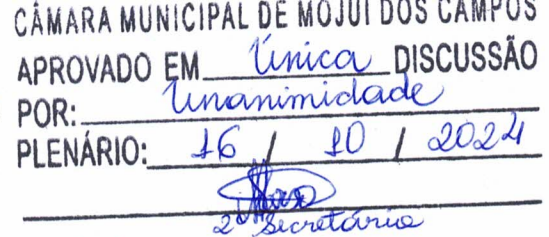 CÂMARA MUNICIPAL DE MOJUÍ DOS CAMPOS
APROVADO EM Única DISCUSSÃO
POR: Unanimidade
PLENÁRIO: 16 / 10 / 2024
2ª Secretária